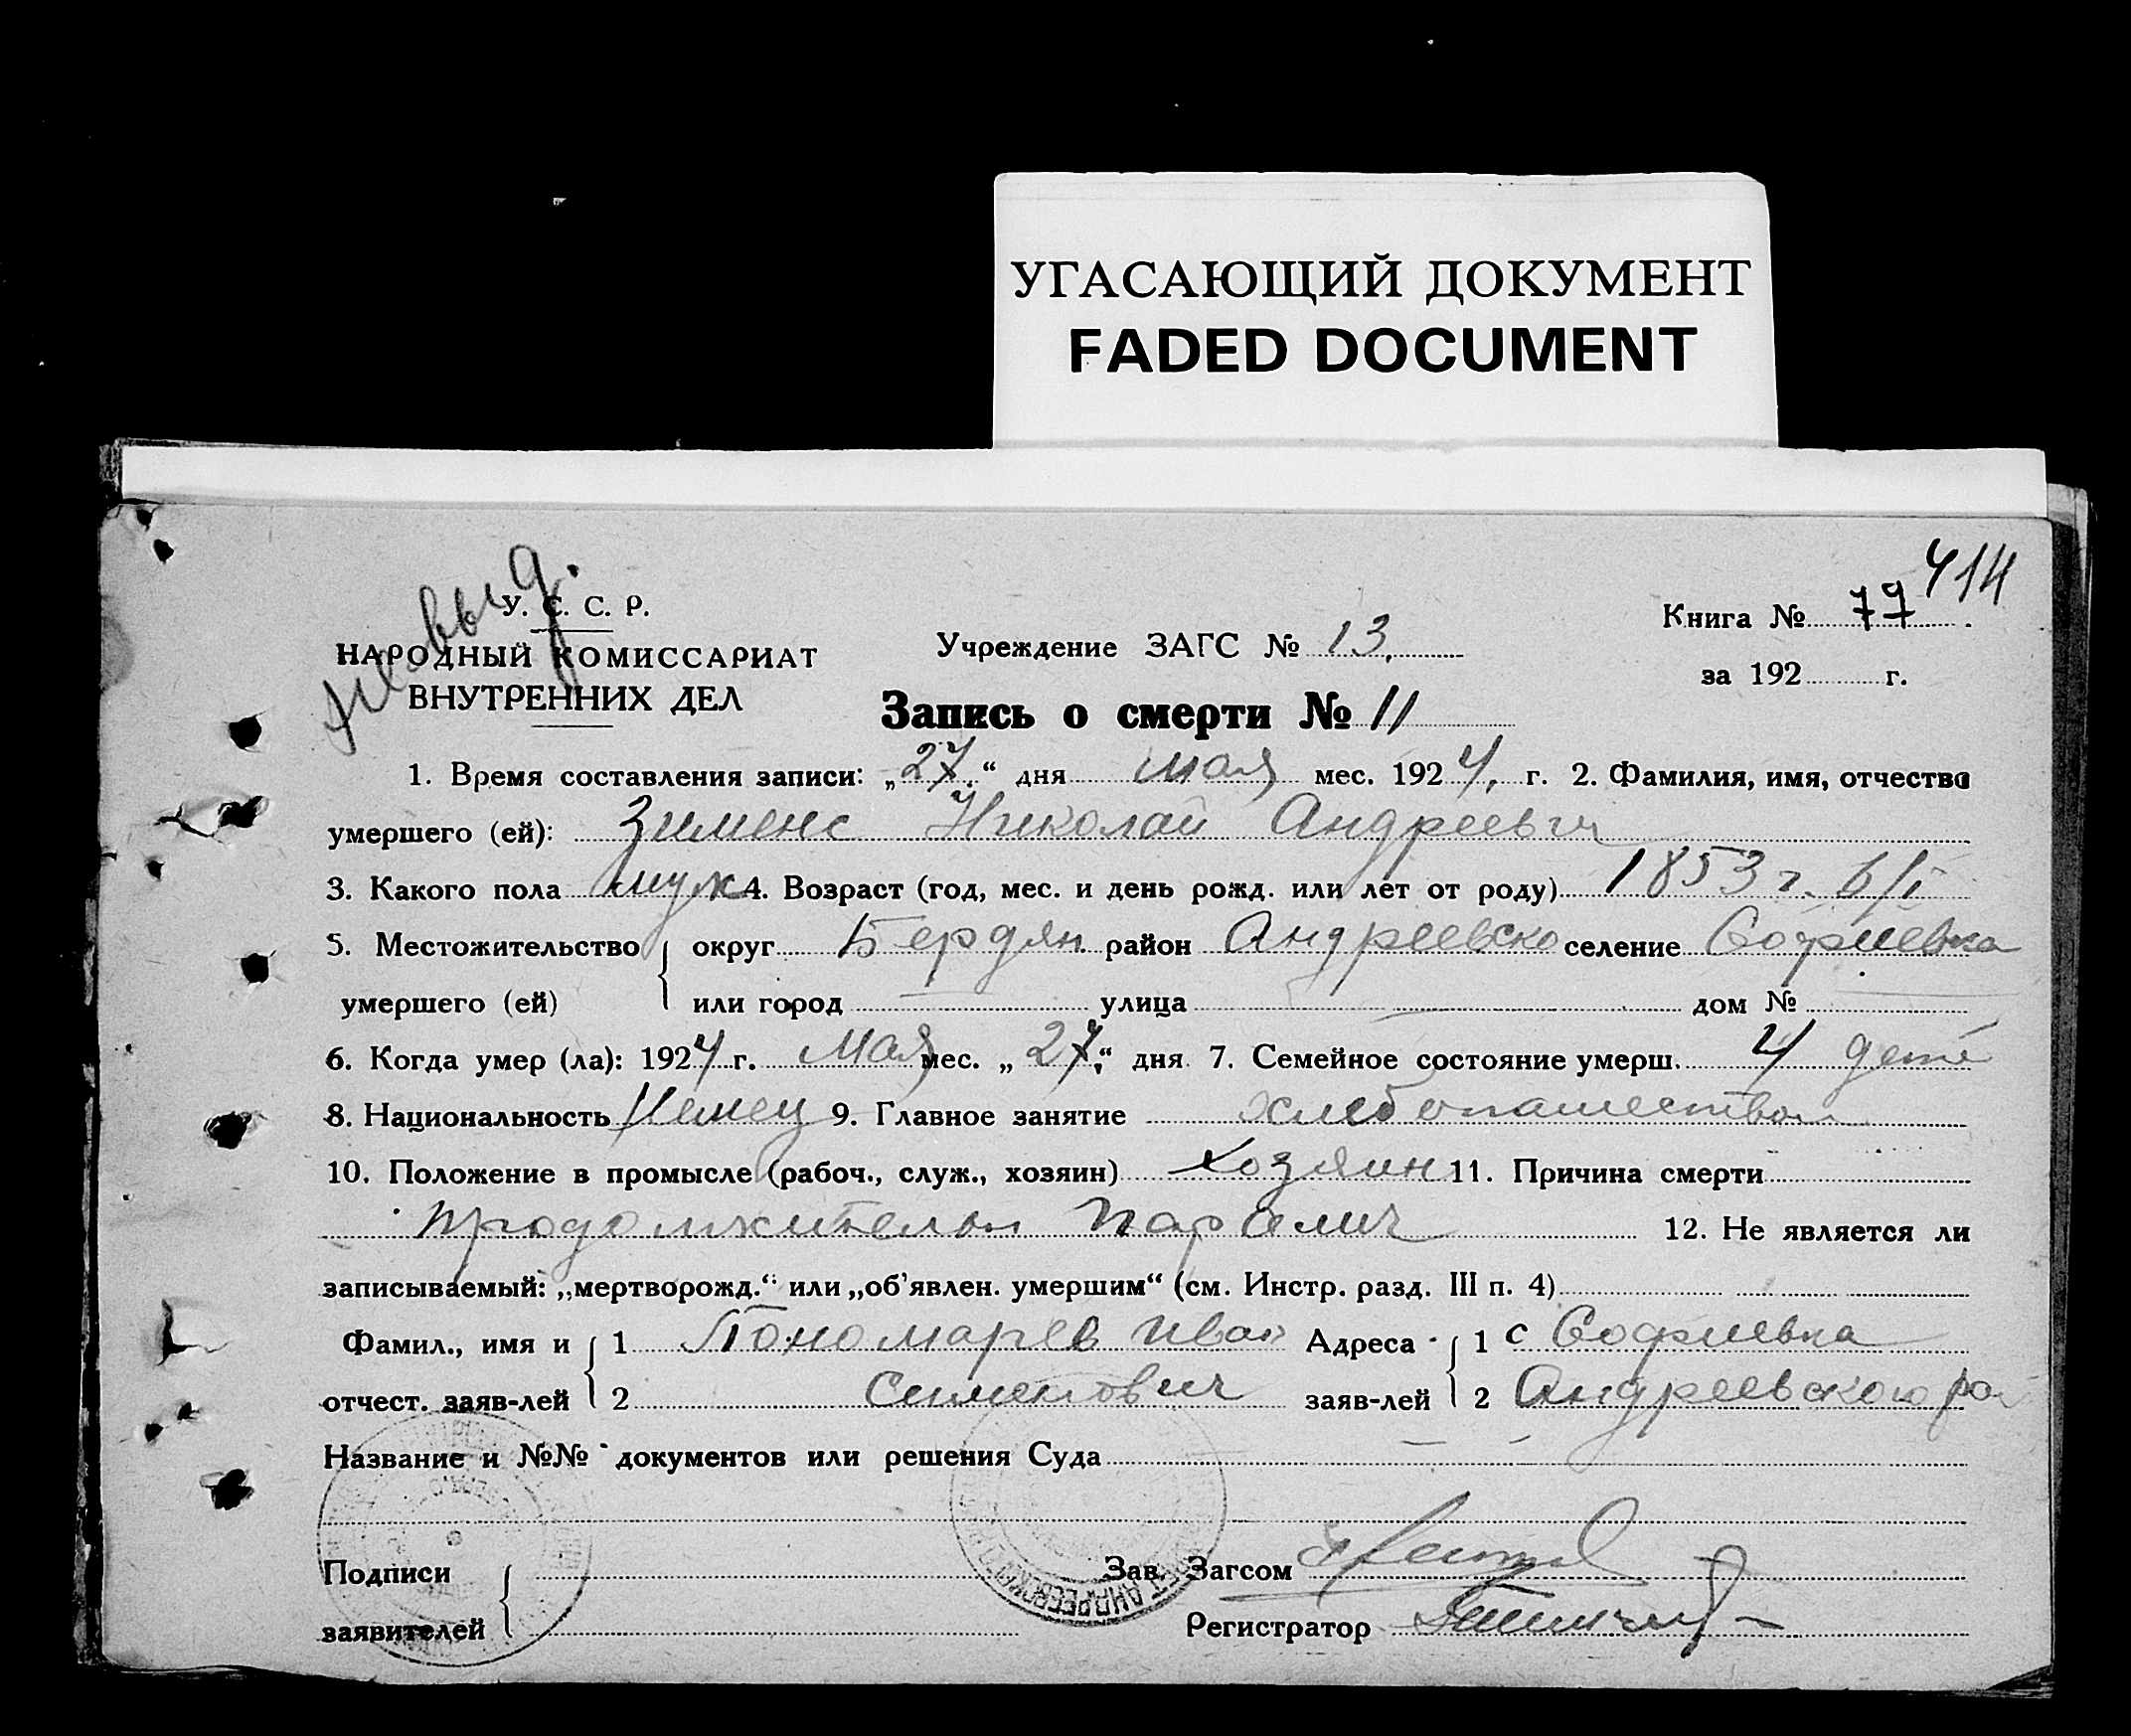 УГАСАЮЩИЙ ДОКУМЕНТ
FADED DOCUMENT
414
У. С. С. Р.
НАРОДНЫЙ КОМИССАРИАТ
ВНУТРЕННИХ ДЕЛ
Учреждение ЗАГС № 13.
Книга № 77
за 192 г.
Запись о смерти № 11
1. Время составления записи: „27“ дня мая мес. 1924. г. 2. Фамилия, имя, отчество
умершего (ей): Зименс Николай Андреевич
3. Какого пола муж 4. Возраст (год, мес. и день рожд. или лет от роду) 1853 г. 6/I
5. Местожительство { округ Бердян. район Андреевско селение Софиевка
умершего (ей) или город улица дом №
6. Когда умер (ла): 1924 г. мая мес. „27“ дня 7. Семейное состояние умерш. 4 дете
8. Национальность Немец 9. Главное занятие хлебопашеством
10. Положение в промысле (рабоч., служ., хозяин) хозяин 11. Причина смерти
продолжительн паралич 12. Не является ли
записываемый: „мертворожд.“ или „об'явлен. умершим“ (см. Инстр. разд. III п. 4)
Фамил., имя и { 1 Пономарев Иван Адреса { 1 с Софиевка
отчест. заяв-лей 2 Семенович заяв-лей 2 Андреевского ра
Название и №№ документов или решения Суда
Подписи Зав. Загсом
заявителей Регистратор